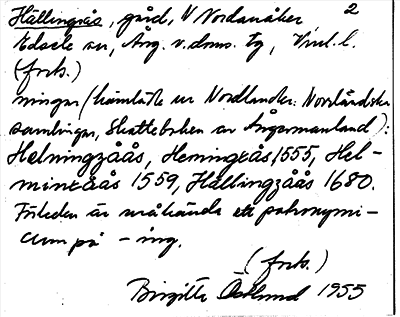 Hällingsås, gård, V Nordanåker 2
Edsele sn, Ång. v.doms. tg, Vnl. l.
(forts.)
ningar (hämtade ur Nordlander: Norrländska
samlingar, Skatteboken av Ångermanland):
Helningzåås, Hemingxås 1555, Hel-
mingxåås 1559, Hällingzåås 1680.
Förleden är måhända ett patronymi-
cum på -ing.
(forts.)
Birgitta Östlund 1955